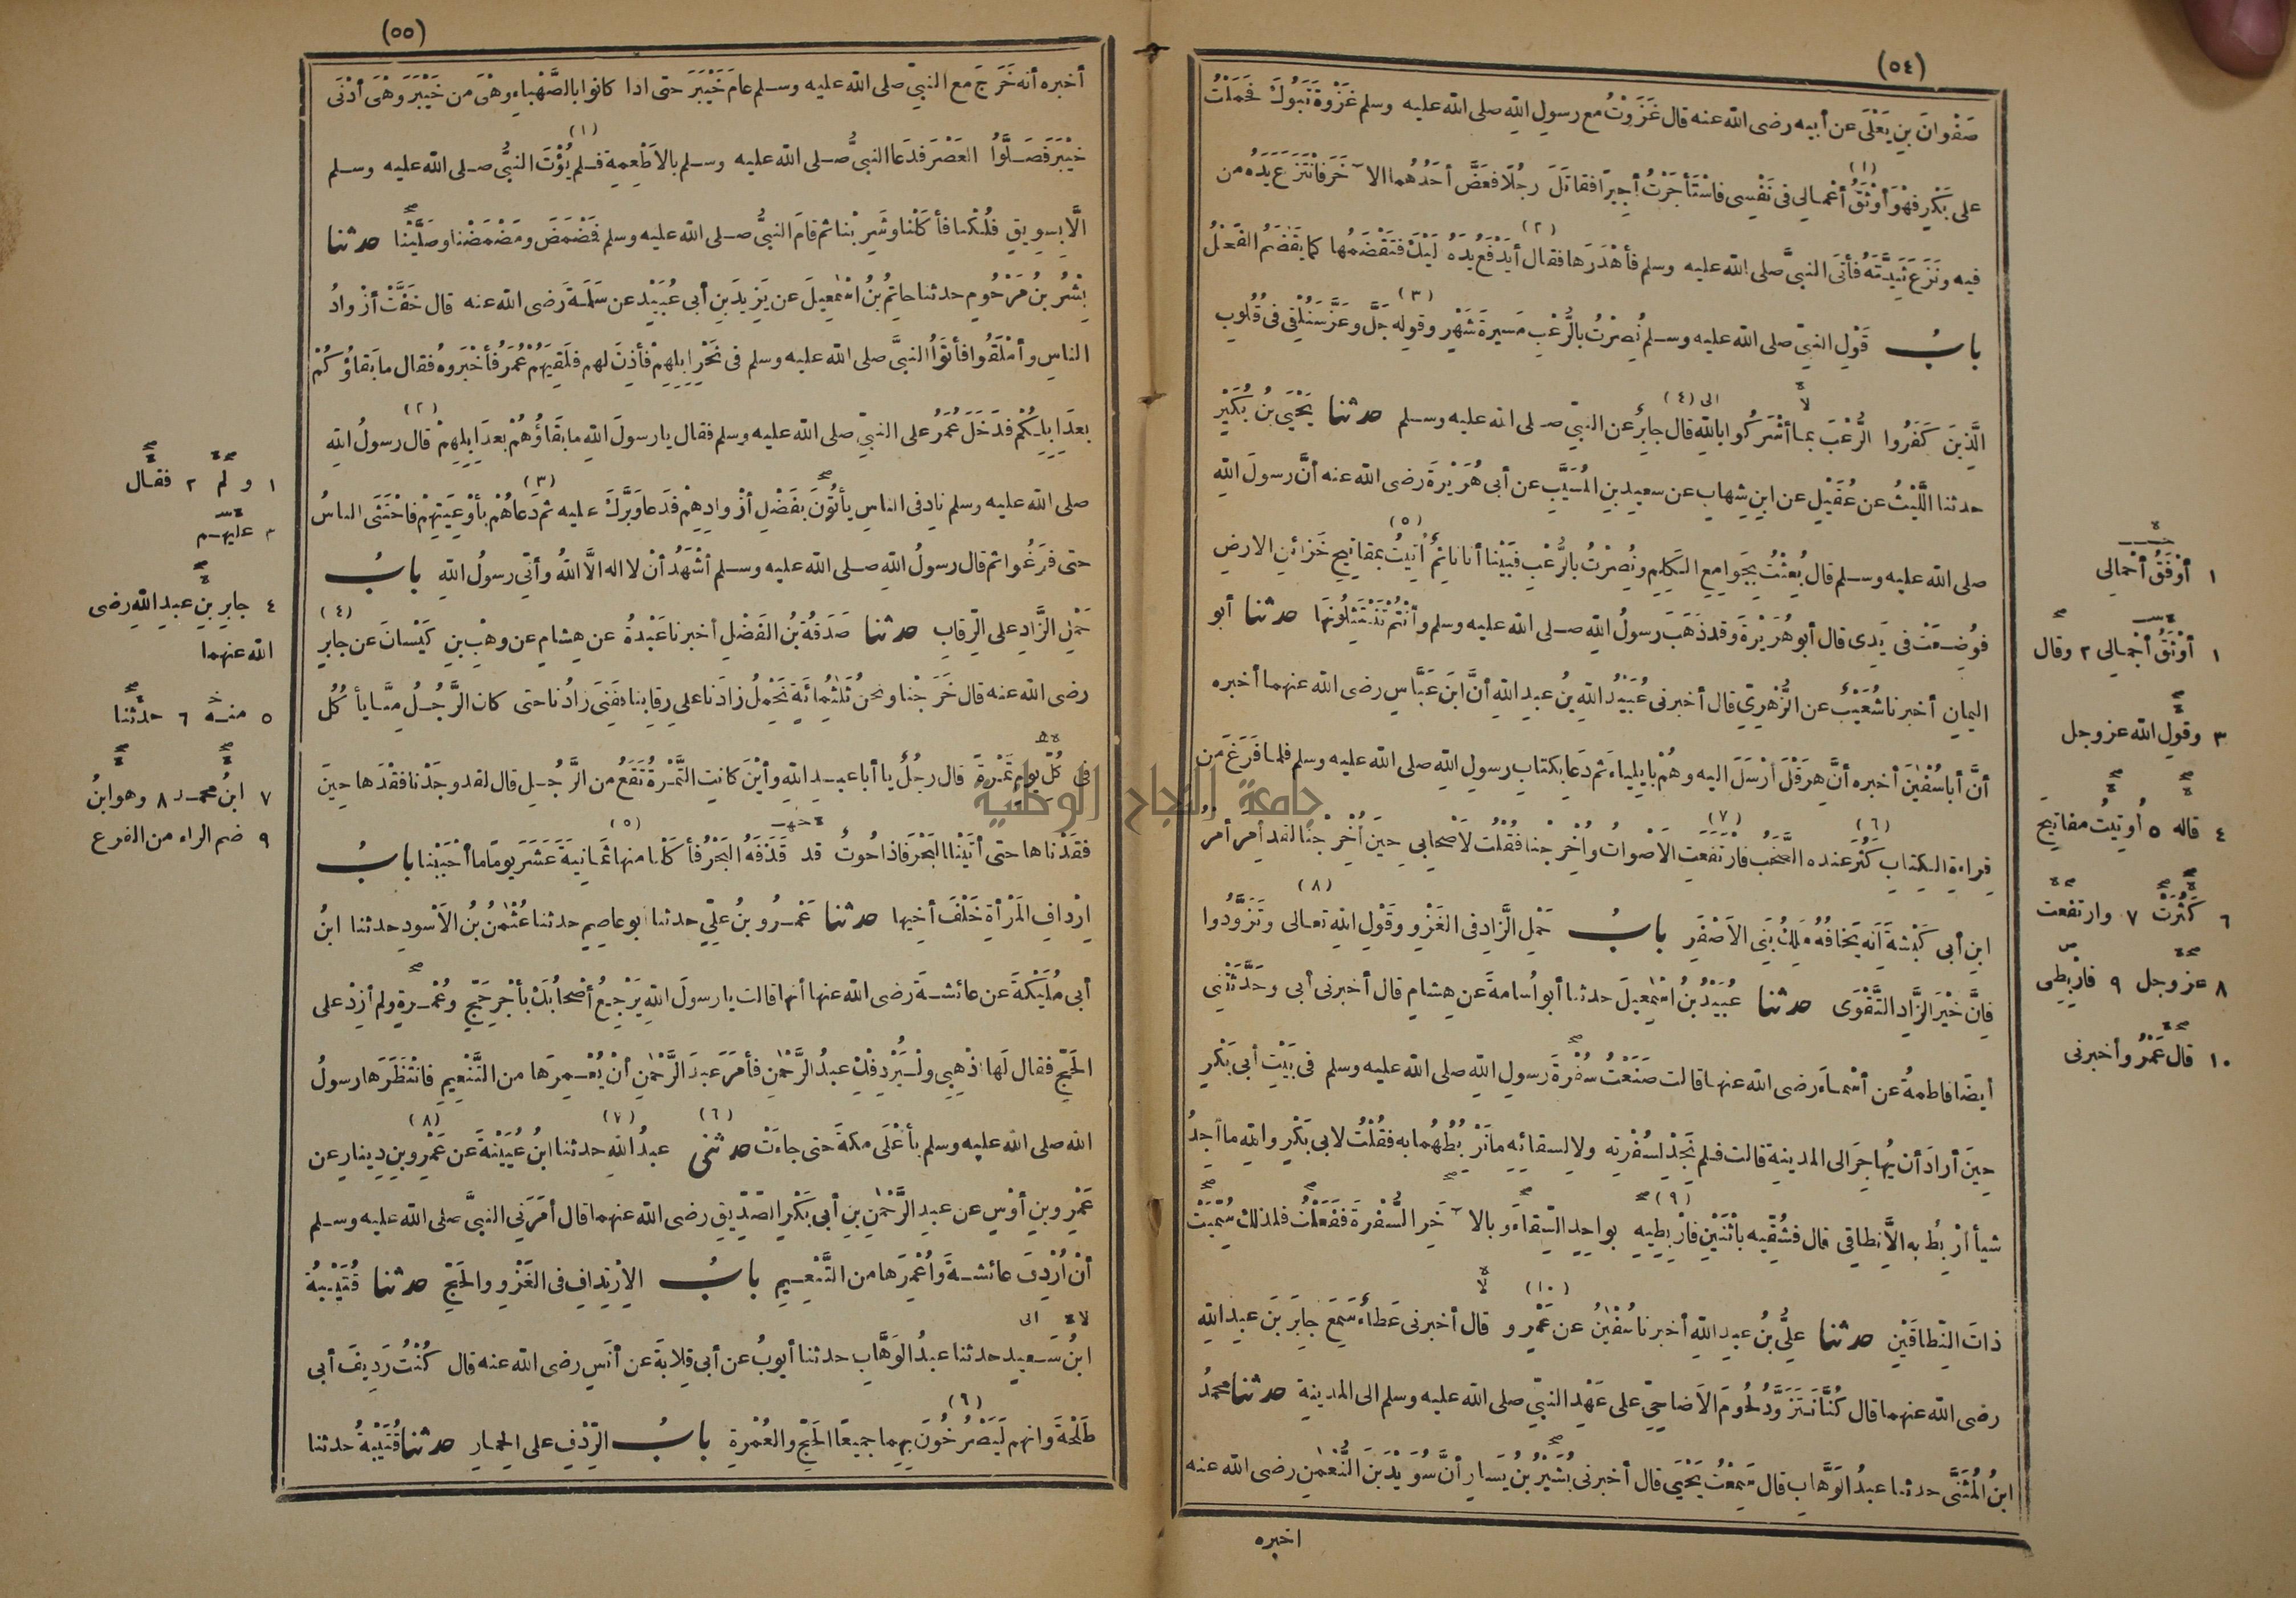 (٥٤)
صَفْوانَ بنِ يَعْلَى عن أبيه رضى الله عنه قال غَزَوْتُ مع رسولِ اللهِ صلى الله عليه وسلم غَزْوةَ تَبُوكَ فَحَمَلْتُ
على بَكْرٍ فهْوَ أوْثَقُ (١) أعْمالى فى نَفْسِى فاسْتَأْجَرْتُ أجِيرًا فقاتَلَ رجُلًا فعَضَّ أحَدُهُما الآخَرَ فانْتَزَعَ يَدَهُ من
فيه ونَزَعَ ثَنِيَّتَهُ فأتَى النبىَّ صلى الله عليه وسلم فأهْدَرَها فقال (٢) أيَدْفَعُ يدَهُ لَيْكَ فتَقْضَمُها كما يَقْضَمُ الفَحْلُ
بابُ قَوْلِ النبىِّ صلى الله عليه وسلم نُصِرْتُ بالرُّعْبِ مَسيرةَ شَهْرٍ وقولِه (٣) جَلَّ وعَزَّ سَنُلْقِى فى قُلُوبِ
الَّذِينَ كَفَرُوا الرُّعْبَ بما أشْرَكُوا باللهِ قال (٤) جابِرٌ عن النبىِّ صلى الله عليه وسلم حدثنا يَحْيَى بنُ بُكَيْرٍ
حدثنا اللَّيْثُ عن عُقَيْلٍ عن ابنِ شِهابٍ عن سعيدِ بنِ المُسَيَّبِ عن أبى هُرَيْرةَ رضى الله عنه أنَّ رسولَ اللهِ
صلى الله عليه وسلم قال بُعِثْتُ بِجَوامِعِ الكَلِمِ ونُصِرْتُ بالرُّعْبِ فبَيْنا أنا نائمٌ (٥) أُتِيتُ بمَفاتيحِ خَزائنِ الارضِ
فوُضِعَتْ فى يَدِى قال أبو هُرَيْرةَ وقد ذَهَبَ رسولُ اللهِ صلى الله عليه وسلم وأنْتُمْ تَنْتَثِلُونَها حدثنا أبو
اليمانِ أخبرنا شُعَيْبٌ عن الزُّهْرِىِّ قال أخبرنى عُبَيْدُ اللهِ بنُ عبدِ اللهِ أنَّ ابنَ عَبَّاسٍ رضى الله عنهما أخبره
أنَّ أبا سُفْيٰنَ أخبره أنَّ هِرَقْلَ أرْسَلَ اليه وهُمْ بايلِياءَ ثم دَعا بكتابِ رسولِ اللهِ صلى الله عليه وسلم فلما فَرَغَ من
قراءةِ الكِتابِ كَثُرَ (٦) عنده الصَّخَبُ فارْتَفَعَتِ (٧) الاَصْواتُ وأُخْرِجْنا فقُلْتُ لاَصْحابى حِينَ أُخْرِجْنا لقد أمِرَ أمْرُ
ابنِ أبى كَبْشةَ انَّه يَخافُهُ مَلِكُ بَنِى الاَصْفَرِ بابُ حَمْلِ الزَّادِ فى الغَزْوِ وقَوْلِ اللهِ تعالى (٨) وتَزَوَّدُوا
فانَّ خَيْرَ الزَّادِ التَّقْوَى حدثنا عُبَيْدُ بنُ اسْمٰعيلَ حدثنا أبو أُسامةَ عن هِشامٍ قال أخبرنى أبى وحَدَّثَتْنِى
أيضًا فاطمةُ عن أسْماءَ رضى الله عنها قالت صَنَعْتُ سُفْرةَ رسولِ اللهِ صلى الله عليه وسلم فى بَيْتِ أبى بَكْرٍ
حِينَ أرادَ أن يُهاجِرَ الى المدينةِ قالت فلم نَجِدْ لسُفْرتِه ولا لِسِقائِه ما نَرْبُطُهُما به فقُلْتُ لابى بَكْرٍ والله ما أجِدُ
شيأ أرْبُطُ به الَّا نِطاقِى قال فشُقِّيه باثْنَيْنِ فارْبِطِيه (٩) بواحِدٍ السِّقاءَ وبالآخَرِ السُّفْرةَ ففَعَلْتُ فلذلك سُمِّيَتْ
ذاتَ النِّطاقَيْنِ حدثنا علىُّ بنُ عبدِ اللهِ أخبرنا سُفْيٰنُ عن عَمْرٍو (١٠) قال أخبرنى عَطاءٌ سَمِعَ جابِرَ بنَ عبدِ اللهِ
رضى الله عنهما قال كُنَّا نَتَزَوَّدُ لُحُومَ الاَضاحِىِّ على عَهْدِ النبىِّ صلى الله عليه وسلم الى المدينةِ حدثنا محمدُ
ابنُ المُثَنَّى حدثنا عبدُ الوَهَّابِ قال سَمِعْتُ يَحْيَى قال أخبرنى بُشَيْرُ بنُ يَسارٍ أنَّ سُوَيْدَ بنَ النُّعْمٰنِ رضى الله عنه
اخبره
١ أوْفَقُ أحْمالى
١ أوْثَقُ أحْمالى ٢ وقال
٣ وقولِ الله عز وجل
٤ قاله ٥ أُوتِيتُ مفاتيحَ
٦ كَثُرَتْ ٧ وارتفعت
٨ عز وجل ٩ فارْبِطِى
١٠ قال عَمْرٌو أخبرنى
(٥٥)
أخبره أنه خَرَجَ مع النبىِّ صلى الله عليه وسلم عامَ خَيْبَرَ حتى اذا كانوا بالصَّهْباءِ وهْىَ من خَيْبَرَ وهْىَ أدْنَى
خَيْبَرَ فصَلَّوُا العَصْرَ فدَعا النبىُّ صلى الله عليه وسلم بالاَطْعِمةِ فلم (١) يُؤْتَ النبىُّ صلى الله عليه وسلم
الَّا بسوِيقٍ فلُكْنا فأكَلْنا وشَرِبْنا ثم قامَ النبىُّ صلى الله عليه وسلم فمَضْمَضَ ومَضْمَضْنا وصَلَّيْنا حدثنا
بِشْرُ بنُ مَرْحُومٍ حدثنا حاتِمُ بنُ اسْمٰعِيلَ عن يَزِيدَ بنِ أبى عُبَيْدٍ عن سَلَمةَ رضى الله عنه قال خَفَّتْ أزْوادُ
الناسِ وأمْلَقُوا فأتَوُا النبىَّ صلى الله عليه وسلم فى نَحْرِ ابِلِهِمْ فأذِنَ لهم فلَقِيَهُمْ عُمَرُ فأخْبَروهُ فقال ما بَقاؤُكُمْ
بعدَ ابِلِكُمْ فدَخَلَ عُمَرُ على النبىِّ صلى الله عليه وسلم فقال يا رسولَ اللهِ ما بَقاؤُهُمْ بعدَ ابِلِهِمْ قال (٢) رسولُ اللهِ
صلى الله عليه وسلم نادِ فى الناسِ يأتُونَ بفَضْلِ أزْوادِهِمْ فدَعا وبَرَّكَ عليه (٣) ثم دَعاهُمْ بأوْعِيَتِهِمْ فاحْتَثَى الناسُ
حتى فرَغُوا ثم قال رسولُ اللهِ صلى الله عليه وسلم أشْهَدُ أنْ لا اله الَّا اللهُ وأنِّى رسولُ اللهِ بابُ
حَمْلِ الزَّادِ على الرِّقابِ حدثنا صَدَقةُ بنُ الفَضْلِ أخبرنا عَبْدةُ عن هِشامٍ عن وهْبِ بنِ كَيْسانَ عن جابِرٍ (٤)
رضى الله عنه قال خَرَجْنا ونحنُ ثَلٰثُمِائَةٍ نَحْمِلُ زادَنا على رِقابِنا ففَنِىَ زادُنا حتى كان الرَّجُلُ مِنَّا يأكُلُ
فى كُلِّ يومٍ تَمْرةً قال رجُلٌ يا أبا عبدِ اللهِ وأيْنَ كانتِ التَّمْرةُ تَقَعُ من الرَّجُلِ قال لقد وجَدْنا فقْدَها حِينَ
فقَدْناها حتى أتَيْنا البَحْرَ فاذا حُوتٌ قد قَذَفَهُ البَحْرُ فأكَلْنا منها (٥) ثمانِيةَ عَشَرَ يومًا ما أحْبَبْنا بابُ
ارْدافِ المَرْأةِ خَلْفَ أخِيها حدثنا عَمْرُو بنُ علِىٍّ حدثنا أبو عاصِمٍ حدثنا عُثْمٰنُ بنُ الاَسْودِ حدثنا ابنُ
أبى مُلَيْكةَ عن عائشةَ رضى الله عنها أنها قالت يا رسولَ اللهِ يَرْجِعُ أصْحابُكَ بأجْرِ حَجٍّ وعُمْرةٍ ولم أزِدْ على
الحَجِّ فقال لَها اذْهبِى ولْيُرْدِفْكِ عبدُ الرَّحْمٰنِ فأمَرَ عبدَ الرَّحْمٰنِ أنْ يُعْمِرَها من التَّنْعِيمِ فانْتَظَرَها رسولُ
الله صلى الله عليه وسلم بأعْلَى مكةَ حتى جاءَتْ حدثنى (٦) عبدُ اللهِ (٧) حدثنا ابنُ عُيَيْنةَ عن عَمْرِو بنِ دِينارٍ (٨) عن
عَمْرِو بنِ أوْسٍ عن عبدِ الرَّحْمٰنِ بنِ أبى بَكْرٍ الصّدِّيقِ رضى الله عنهما قال أمَرَنِى النبىُّ صلى الله عليه وسلم
أنْ أُرْدِفَ عائشةَ وأُعْمِرَها من التَّنْعِيمِ بابُ الاِرْتِدافِ فى الغَزْوِ والحَجِّ حدثنا قُتَيْبةُ
ابنُ سَعِيدٍ حدثنا عبدُ الوَهَّابِ حدثنا أيوبُ عن أبى قِلابةَ عن أنَسٍ رضى الله عنه قال كُنْتُ رَدِيفَ أبى
طَلْحةَ وانهم لَيَصْرُخُونَ (٩) بِهِما جميعًا الحَجِّ والعُمْرةِ بابُ الرِّدْفِ على الحِمارِ حدثنا قُتَيْبةُ حدثنا
١ و لم ٢ فقال
٣ عليهم
٤ جابِرِ بنِ عبدِ اللهِ رضى
الله عنهما
٥ منه ٦ حدَّثنا
٧ ابنُ محمد ٨ وهو ابنُ
٩ ضم الراء من الفرع
جامعة النجاح الوطنية